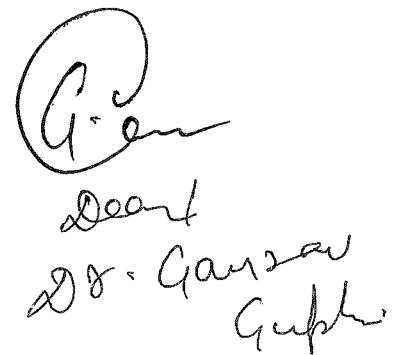 Dean
Dr. Gaurav
Gupta